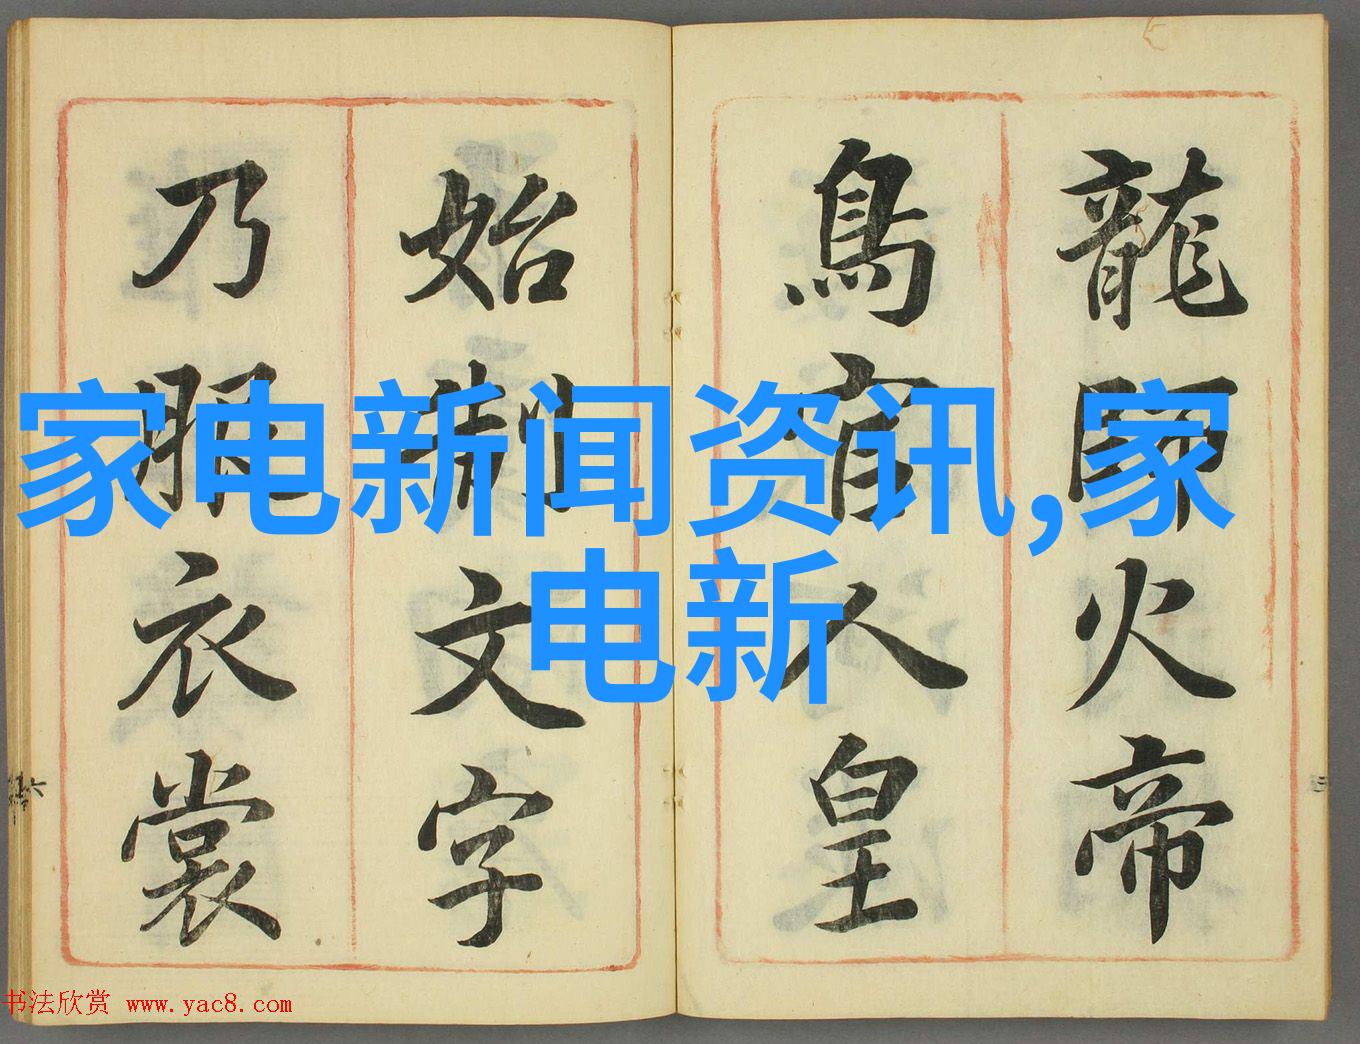 龍師火帝
鳥官人皇
始制文字
乃服衣裳
家电新闻资讯,家
电新
书法欣赏 www.yac8.com